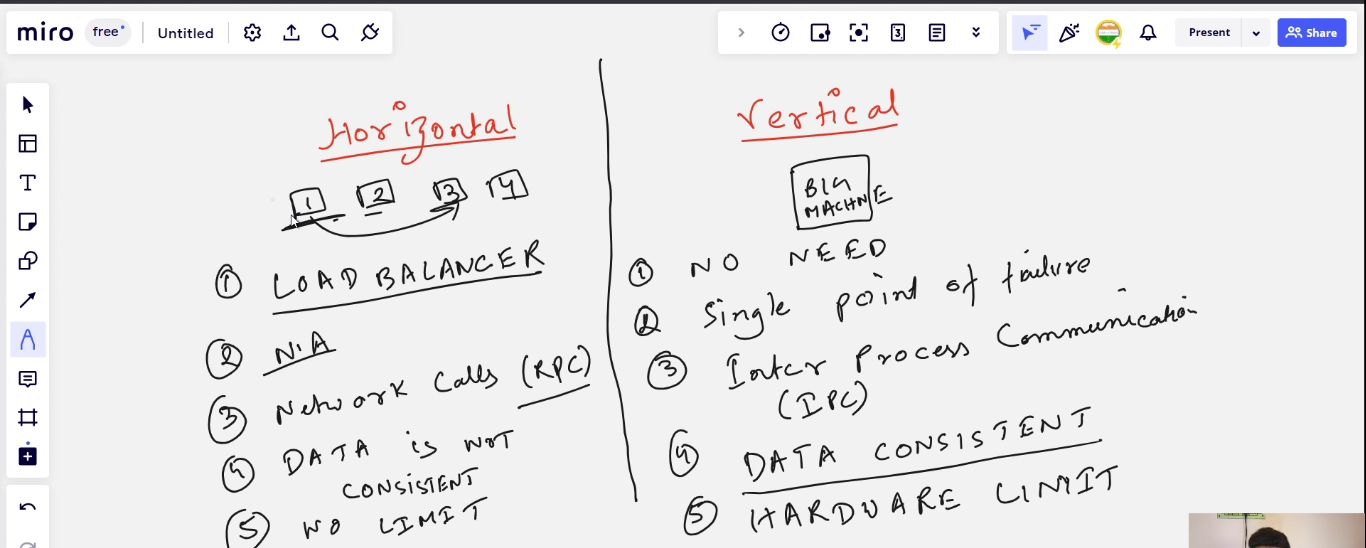 miro free Untitled Present Share
Horizontal
1 2 3 4
① LOAD BALANCER
② N.A
③ Network calls (RPC)
④ DATA is NOT
CONSISTENT
⑤ NO LIMIT
Vertical
BIG
MACHNE
① NO NEED
② Single point of failure
③ Inter Process Communication
(IPC)
④ DATA CONSISTENT
⑤ HARDWARE LIMIT